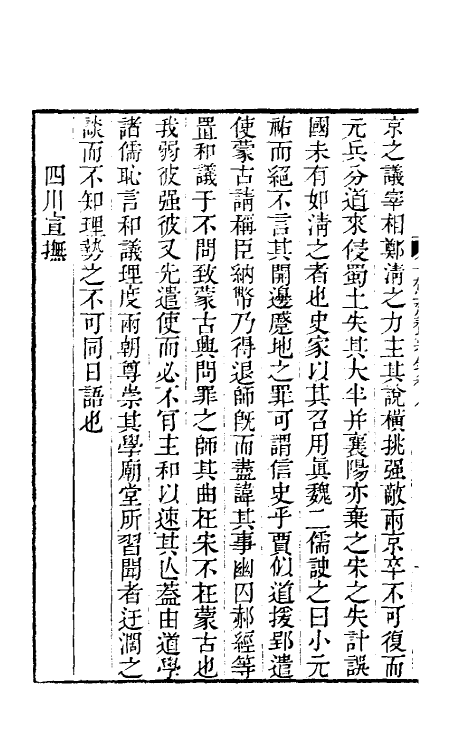 京之議宰相鄭清之力主其說橫挑强敵兩京卒不可復而
元兵分道來侵蜀土失其大半并襄陽亦棄之宋之失計誤
國未有如淸之者也史家以其召用眞魏二儒諛之曰小元
祐而絕不言其開邊蹙地之罪可謂信史乎賈似道援鄂遣
使蒙古請稱臣納幣乃得退師旣而盡諱其事幽囚郝經等
置和議于不問致蒙古興問罪之師其曲在宋不在蒙古也
我弱彼强彼又先遣使而必不肯主和以速其亾蓋由道學
諸儒恥言和議理度兩朝尊崇其學廟堂所習聞者迂濶之
談而不知理勢之不可同日語也
四川宣撫